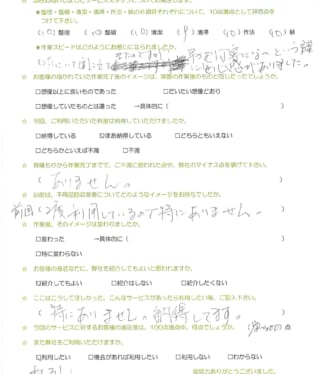 ★整理・整頓・清潔・清掃・作法・絨の６歳目それぞれについて、10点満点として評価点を
つけて下さい。
(10) 整理 (10) 整頓 (10) 清潔 (9) 清掃 (10) 作法 (10) 絨
★作業スピードはどのようにお感じになられましたか。
☆ お客様の描かれていた作業完了後のイメージは、実際の作業後のものと同じだったでしょうか。
□想像以上に良いものであった □だいたい想像どおり
□想像していたものとは違った →具体的に( )
☆ 今回、ご利用いただいた料金は納得していただけましたか。
□納得している ☑まあ納得している □どちらともいえない
□どちらかといえば不満 □不満
☆ 見積もりから作業完了までで、ご不満に思われた点や、弊社のマイナス点を挙げて下さい。
( ありません。 )
☆ 以前は、不用品回収業者についてどのようなイメージをお持ちでしたか。
前回(2度利用しているので特にありません。 )
☆ 作業後、そのイメージは変わりましたか。
□変わった →具体的に( )
□特に変わらない
☆ お客様の身近な方に、弊社を紹介してもよいと思われますか。
☑紹介してもよい □紹介はしない □紹介したくない
☆ ここはこうしてほしかった、こんなサービスがあったら利用したい等、ご記入下さい。
( 特にありません。納得してます。 )
☆ 今回のサービスに対するお客様の満足度は、100点満点中、何点でしょうか。 点
☆ また弊社をご利用いただけますか。
☑利用したい □機会があれば利用したい □利用しない □わからない
ご協力ありがとうございました。